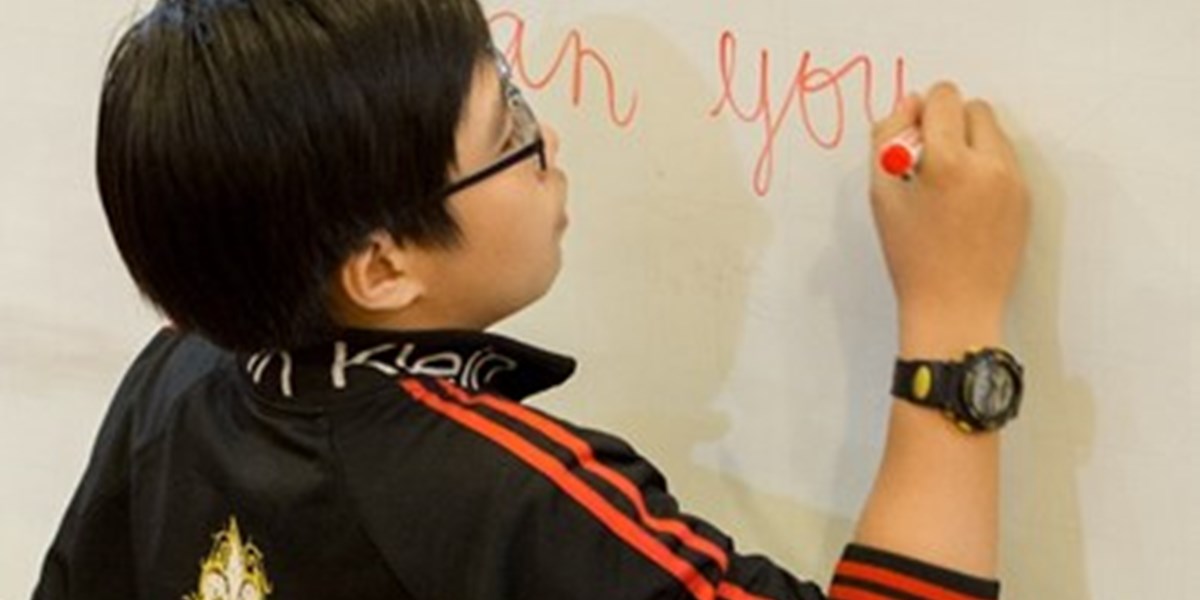 an you
n Klein